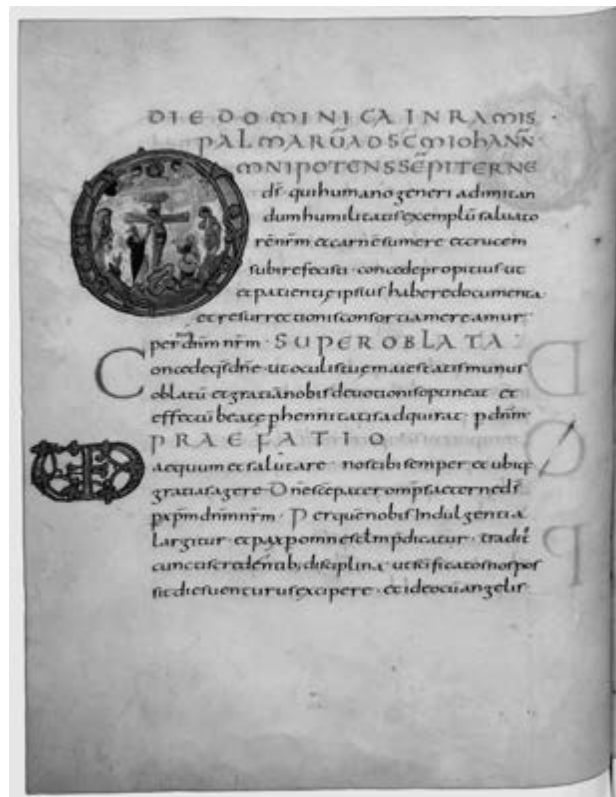 DIE DOMINICA IN RAMIS
PALMARŪ AD SCM IOHANN̄
OMNIPOTENS SEMPITERNE
d̄s · qui humano generi ad imitan
dum humilitatis exemplū saluato
rē nr̄m et carnē sumere et crucem
subire fecisti · concede propitius ut
et patientię ipsius habere documenta
et resurrectionis consortia mereamur ·
per dn̄m nr̄m · SUPER OBLATA ·
Concede qs̄ dn̄e · ut oculis tuę maiestatis munus
oblatū et gratiā nobis deuotionis optineat et
effectū beatę phennitatis adquirat · p dn̄m ·
PRAEFATIO
aequum et salutare · nos tibi semper et ubiq
gratias agere · Dn̄e sc̄e pater omp̄s aeterne d̄s
p xp̄m dn̄m nr̄m · Per quē nobis Indulgentia
largitur · et pax p omne scl̄m p̄dicatur · tradit̄
cunctis credentib; disciplina · ut sc̄ificatos nos pos
sit dies uenturus excipere · et ideo cū angelis ·